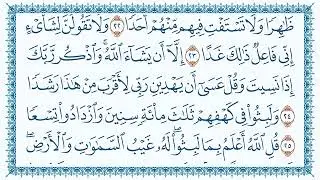 ظَهِرًا وَلَا تَسْتَفْتِ فِيهِم مِّنْهُمْ أَحَدًا ٢٢ وَلَا تَقُولَنَّ لِشَا۟ىْءٍ
إِنِّى فَاعِلٌ ذَٰلِكَ غَدًا ٢٣ إِلَّآ أَن يَشَآءَ ٱللَّهُ ۚ وَٱذْكُر رَّبَّكَ
إِذَا نَسِيتَ وَقُلْ عَسَىٰٓ أَن يَهْدِيَنِ رَبِّى لِأَقْرَبَ مِنْ هَٰذَا رَشَدًا
٢٤ وَلَبِثُوا۟ فِى كَهْفِهِمْ ثَلَٰثَ مِا۟ئَةٍ سِنِينَ وَٱزْدَادُوا۟ تِسْعًا
٢٥ قُلِ ٱللَّهُ أَعْلَمُ بِمَا لَبِثُوا۟ ۖ لَهُۥ غَيْبُ ٱلسَّمَٰوَٰتِ وَٱلْأَرْضِ ۖ